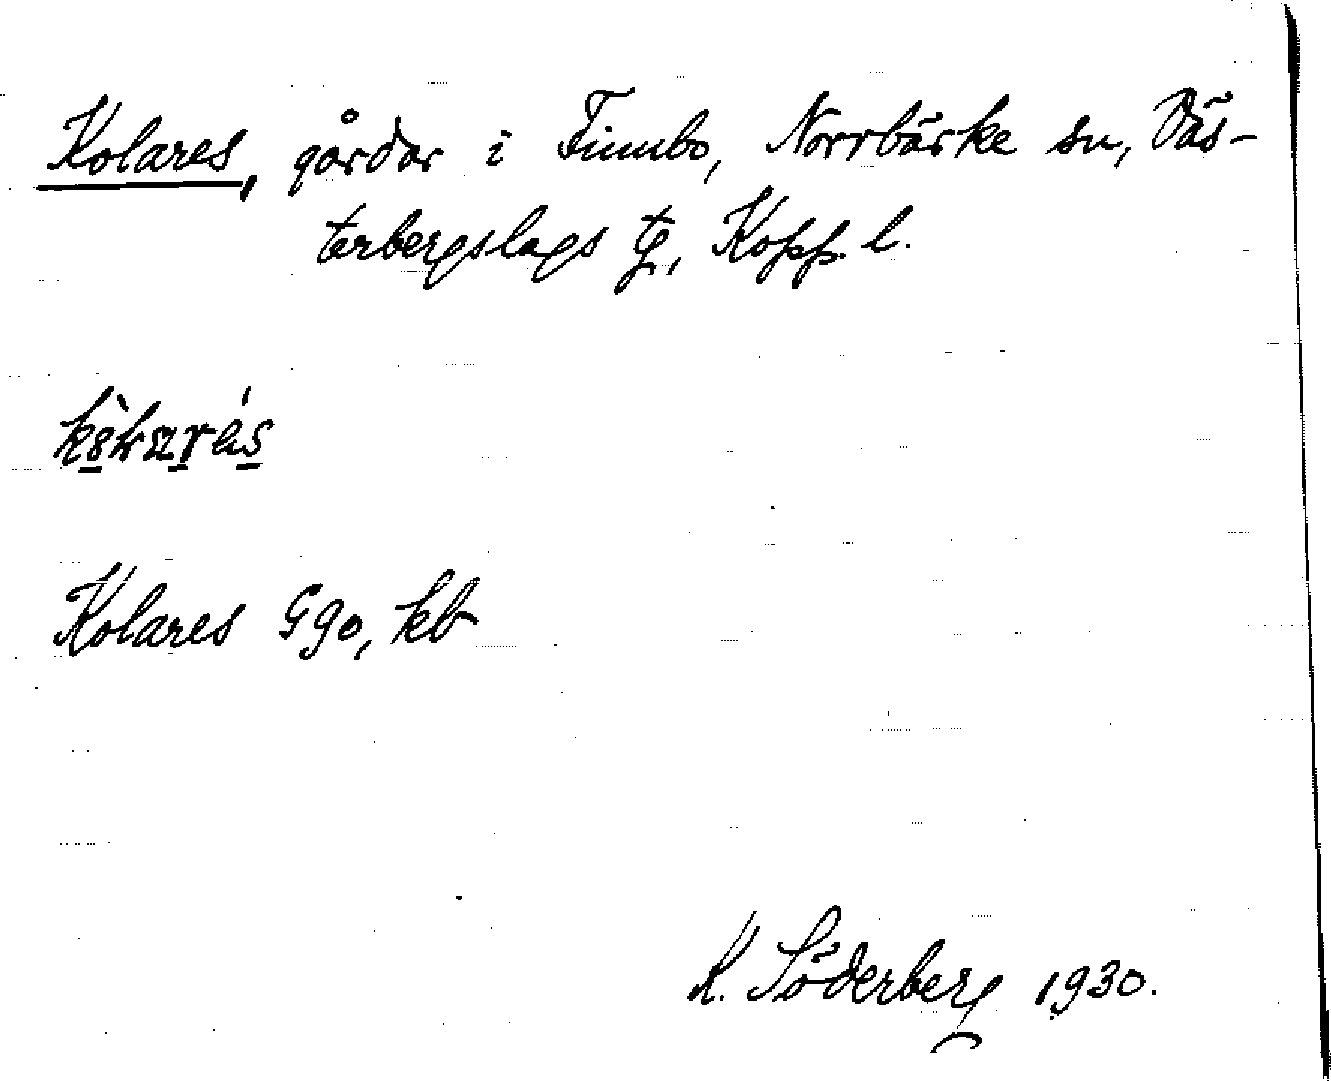 Kolares, gårdar i Finnbo, Norrbärke sn, Väs-
terbergslags tg, Kopp. l.
Kolares Ggo, kb
K. Söderberg 1930.